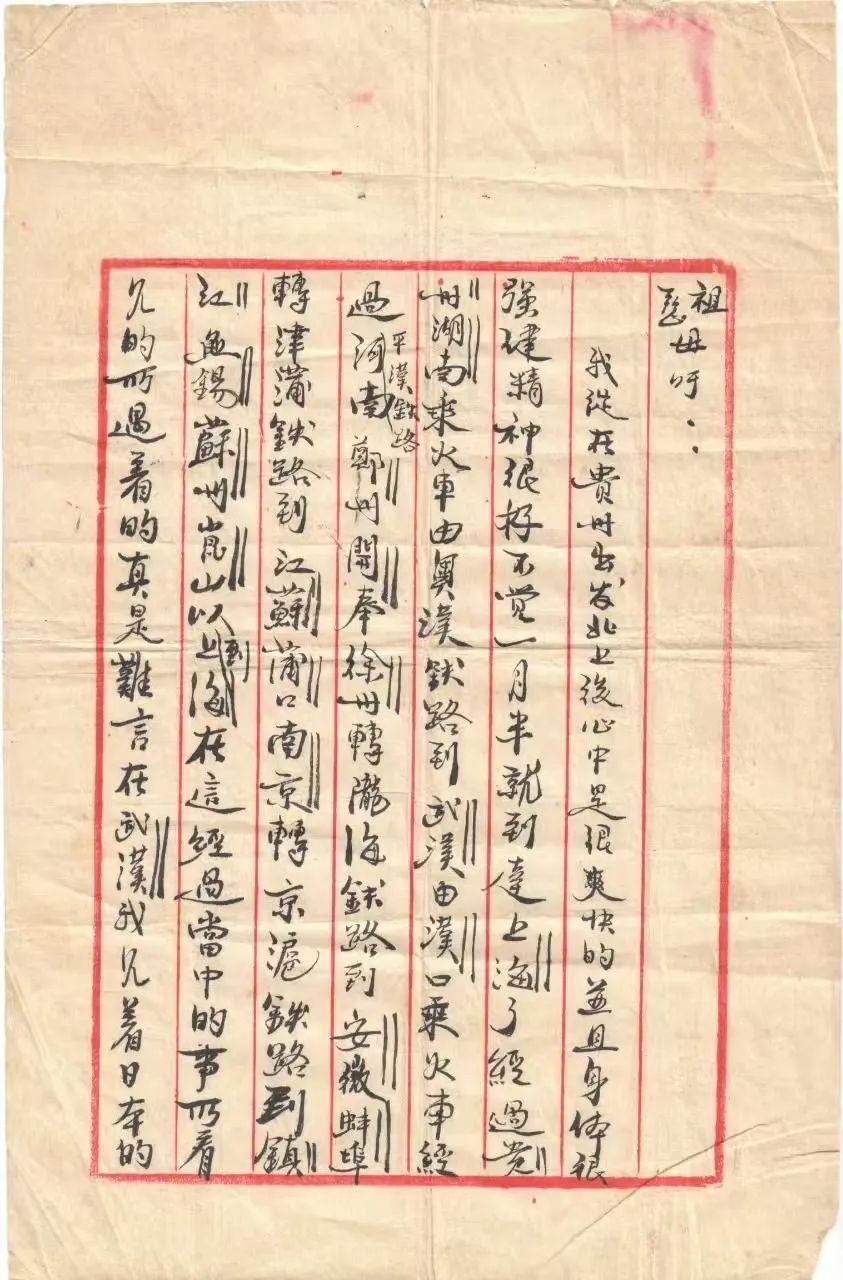 祖慈母呀：
我從在貴州出发北上後心中是很爽快的並且身体很
强健精神很好不觉一月半就到達上海了經過贵
州湖南乘火車由奥漢鉄路到武漢由漢口乘火車經
平漢鉄路
過河南鄭州開奉徐州轉隴海鉄路到安徽蚌埠
轉津蒲鉄路到江蘇蒲口南京轉京滬鉄路到鎮
江無錫蘇州崑山以到上海在這經過當中的事所看
見的所遇着的真是難言在武漢我見着日本的